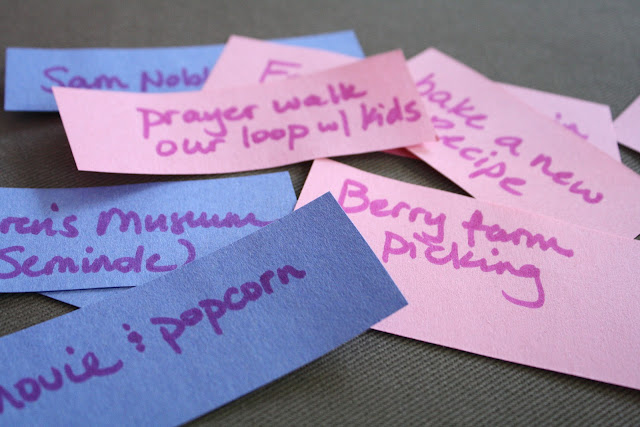 Sam Nobl
prayer walk
our loop w/ kids
bake a new
recipe
ren's Museum
Seminole)
Berry farm
picking
movie & popcorn